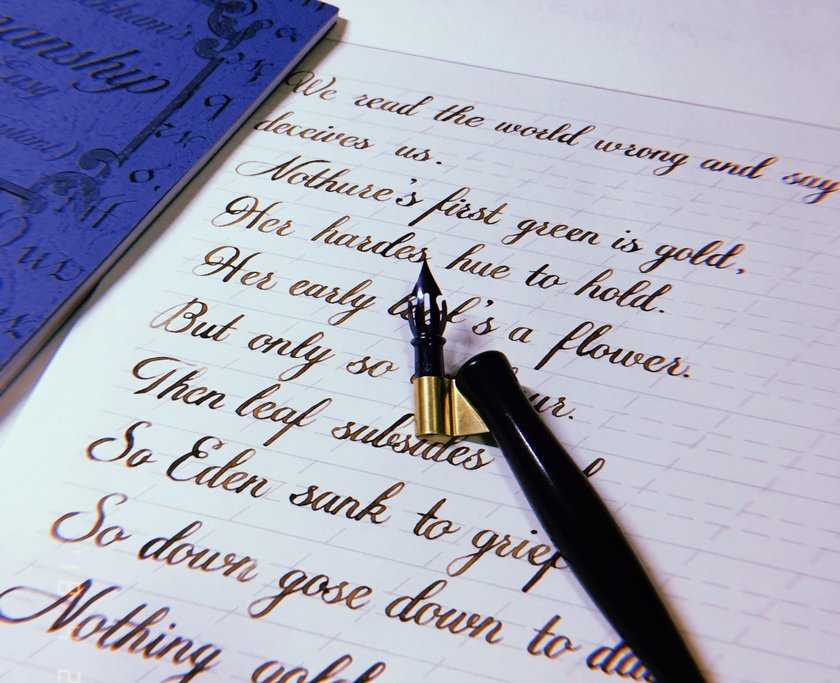 anship
Easy
We read the world wrong and say
deceives us.
Nothure's first green is gold,
Her hardes hue to hold.
Her early 's a flower.
But only so ur.
Then leaf subsides
So Eden sunk to grief
So down gose down to da
Nothing gold